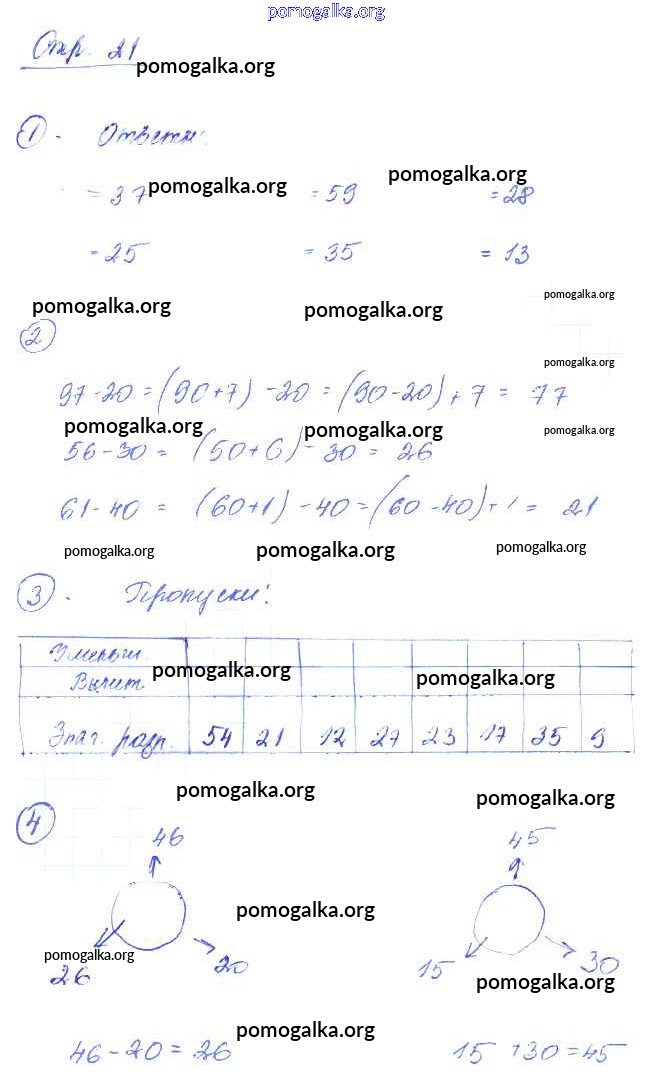 pomogalka.org
Стр. 21
pomogalka.org
1. Ответы:
= 37 pomogalka.org = 59 pomogalka.org = 28
= 25 = 35 = 13
pomogalka.org pomogalka.org pomogalka.org
2
pomogalka.org
97-20 = (90+7) -20 = (90-20) + 7 = 77
pomogalka.org pomogalka.org pomogalka.org
56-30 = (50+6) - 30 = 26
61-40 = (60+1) -40 = (60-40)+1 = 21
pomogalka.org pomogalka.org pomogalka.org
3. Пропуски:
Уменьш. pomogalka.org pomogalka.org
Вычит
разр. 54 21 12 27 23 17 35 9
pomogalka.org pomogalka.org
4
46 45
pomogalka.org
pomogalka.org
26 20 15 30
pomogalka.org
pomogalka.org
46-20=26 15+30=45